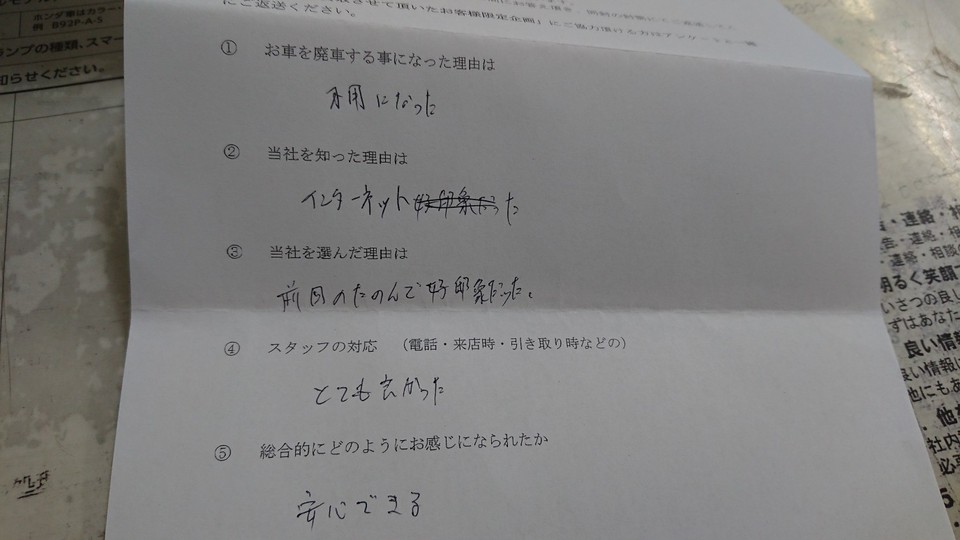 にご返送ください。
① お車を廃車する事になった理由は
不用になった
② 当社を知った理由は
インターネット好印象だった
③ 当社を選んだ理由は
前回のたのんで好印象だった。
④ スタッフの対応 （電話・来店時・引き取り時などの）
とても良かった
⑤ 総合的にどのようにお感じになられたか
安心できる
ホンダ車はカラー・
例 B92P-A-5
ランプの種類、スマー
知らせください。
連絡・相
明るく笑顔で
いさつの良し
ずはあなた
良い情報
良い情報に
他にもあ
社内